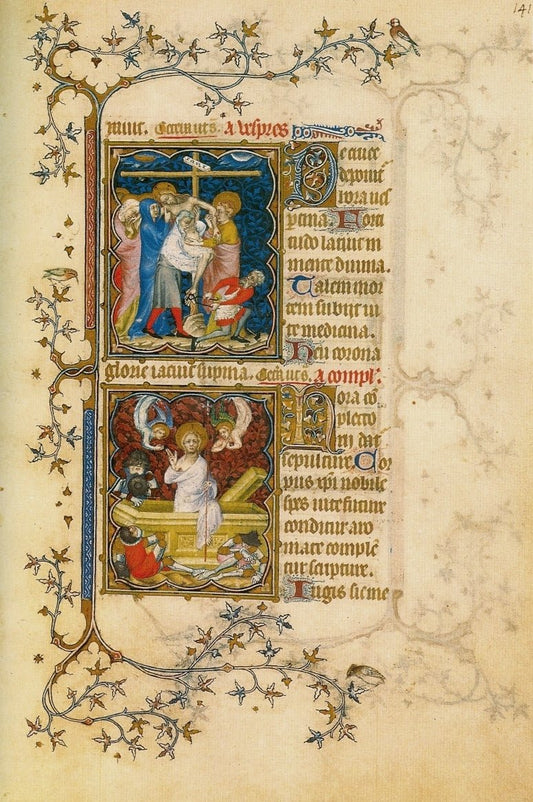 141
a vespres
De cruce
deponit
hora ves
ptina. Forti
tudo latuit in
mente divina.
Talem mor
tem subiit vi
te medicina.
Heu corona
glorie iacuit supina. a compl.
Hora co
plecto
rii dat
sepulture. Cor
pus xpi nobile
spes vite future
conditur aro
mate comple
tur scripture.
Iugis sit me